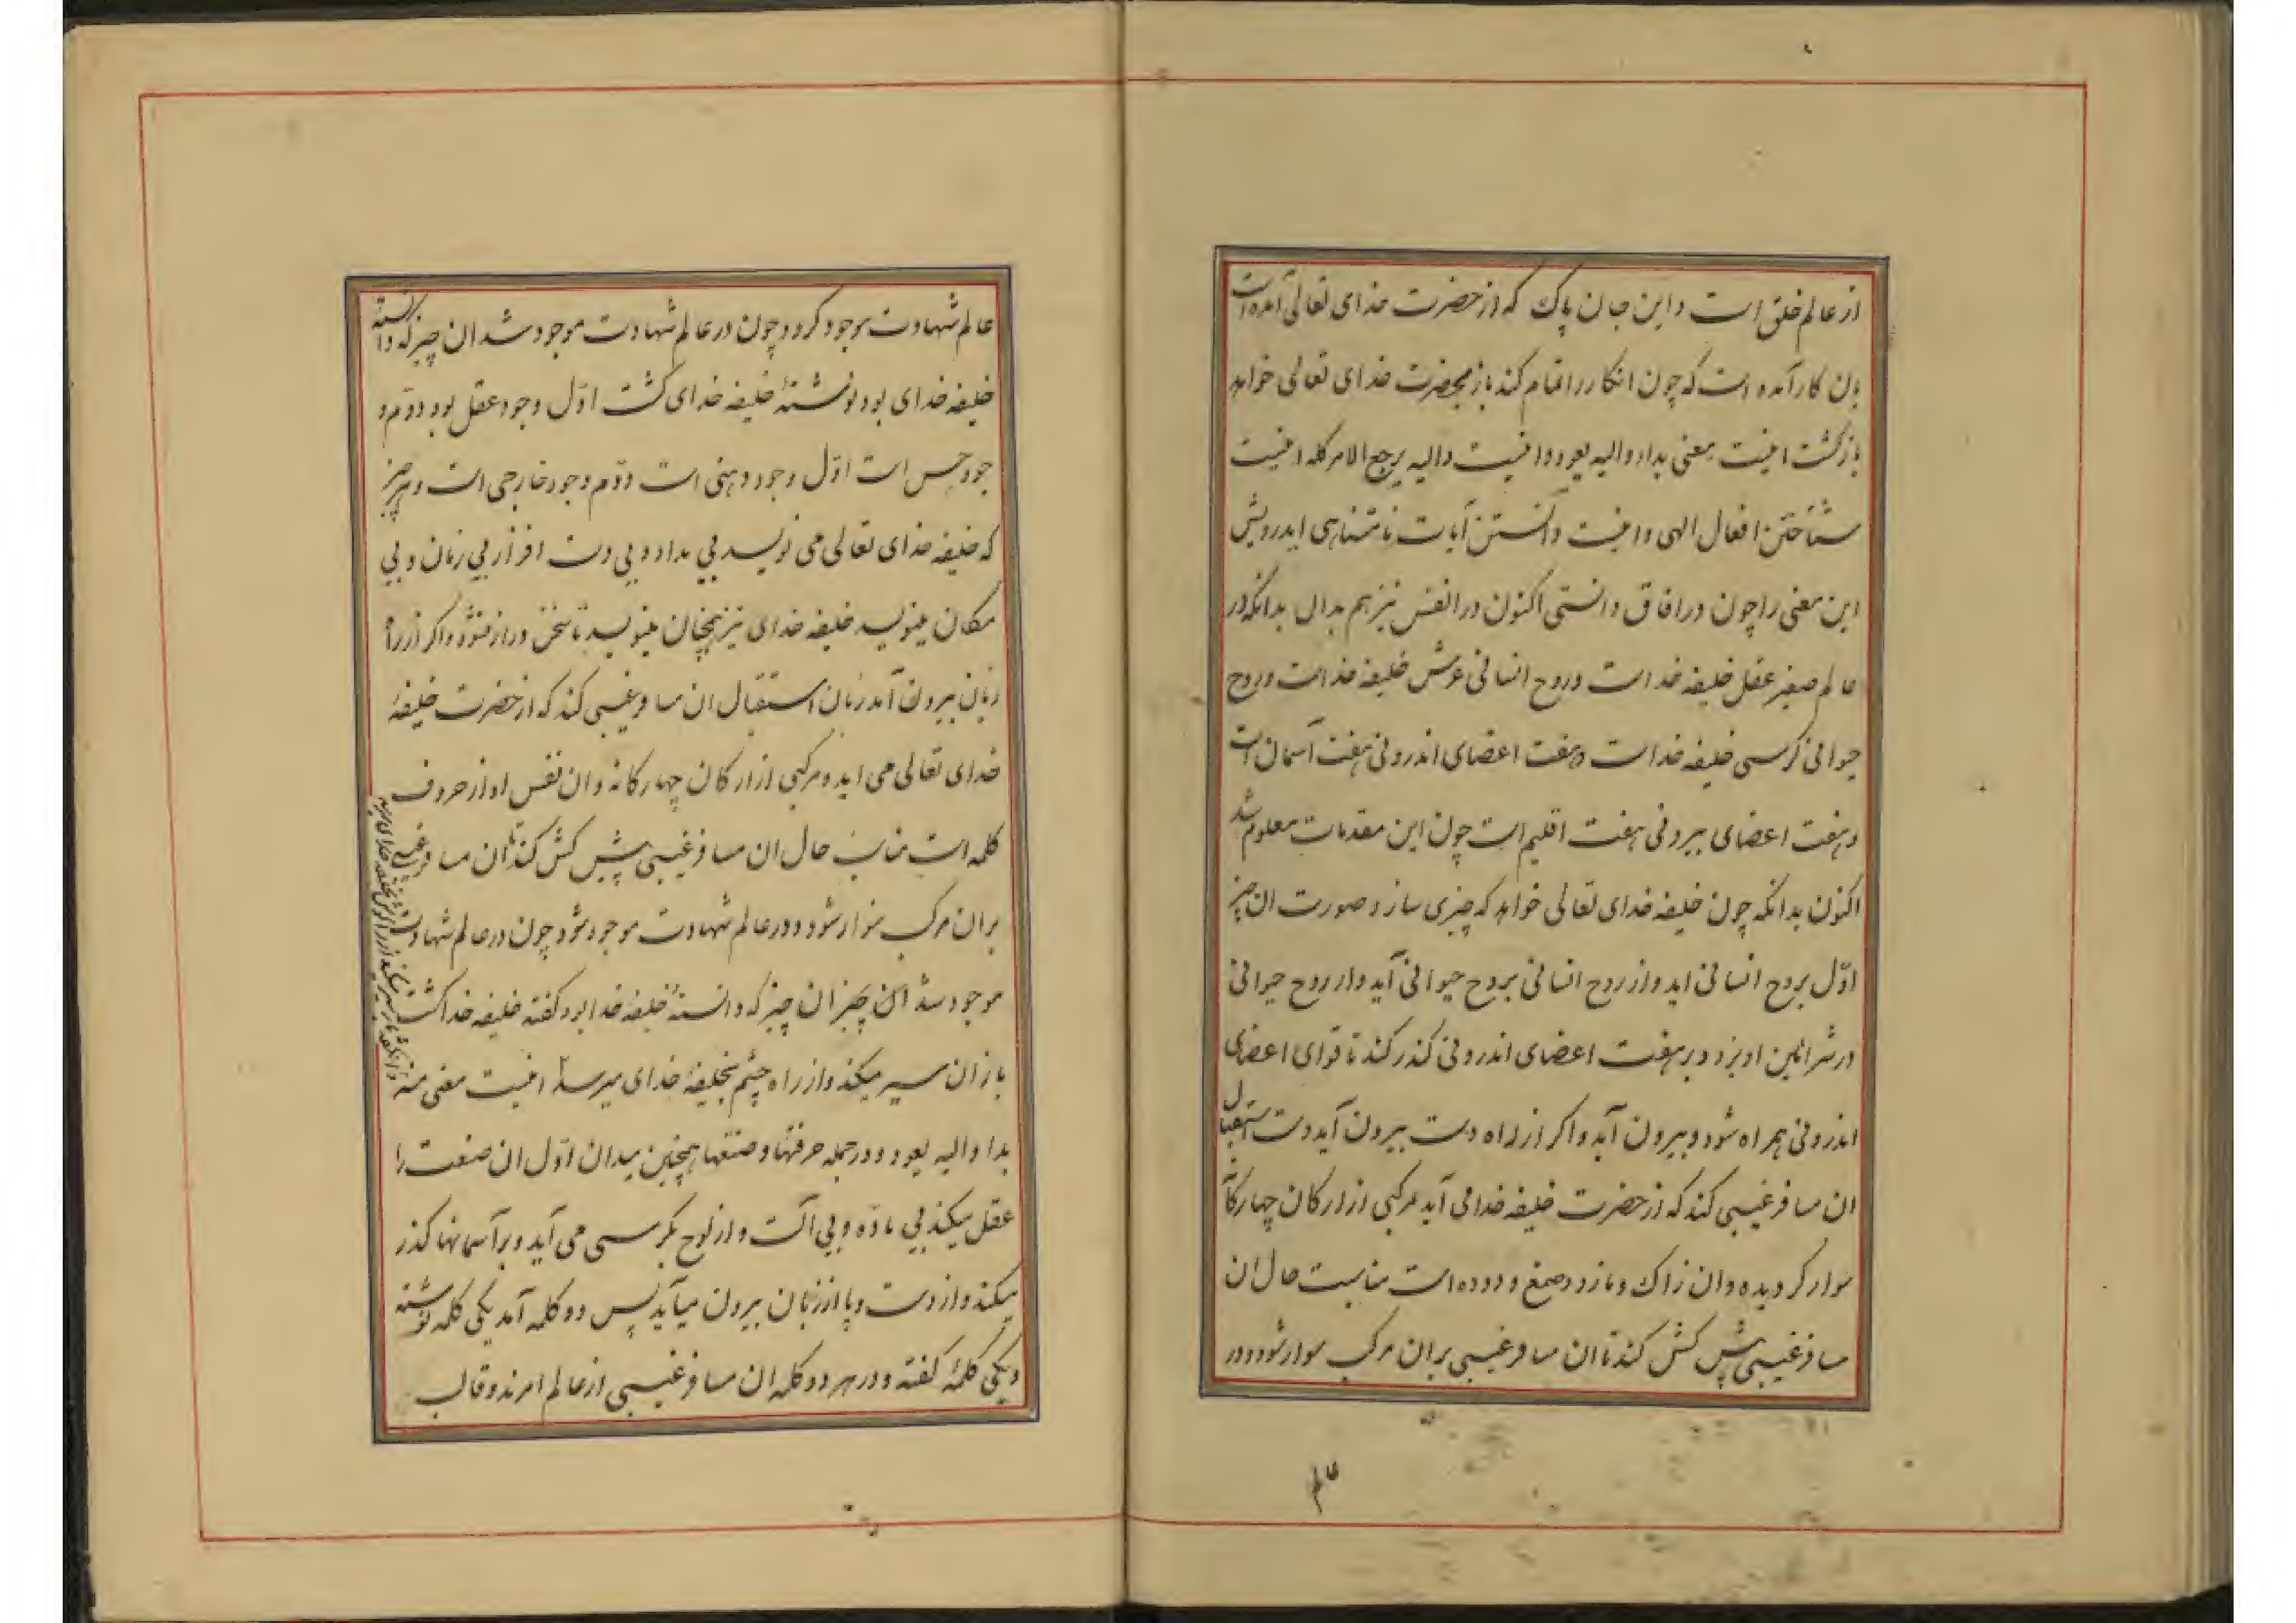 از عالم خلق است و این جان پاک که از حضرت خدای تعالی آمده است
بان کار آمده است که چون انکار را تمام کند باز بحضرت خدای تعالی خواهد
بازکشت اینست معنی بدا و الیه یعود و اینست و الیه یرجع الامر کله اینست
شناختن افعال الهی و اینست دانستن آیات نامتناهی ایدرویش
این معنی را چون در افاق دانستی اکنون در انفس نیز هم بدان بدانکه در
عالم صغیر عقل خلیفه خداست و روح انسانی عرش خلیفه خداست و روح
حیوانی کرسی خلیفه خداست و هفت اعضای اندرونی هفت آسمان است
و هفت اعضای بیرونی هفت اقلیم است چون این مقدمات معلوم شد
اکنون بدانکه چون خلیفه خدای تعالی خواهد که چیزی سازد صورت ان چیز
اوّل بروح انسانی اید و از روح انسانی بروح حیوانی آید و از روح حیوانی
در شرائین اویزد و بر هفت اعضای اندرونی کذر کند تا قوای اعضای
اندرونی همراه شود و بیرون آید و اکر از راه دست بیرون آید دست استقبال
ان مسافر غیبی کند که از حضرت خلیفه خدا می آید مرکبی از ارکان چهارکانه
سوار کردیده و ان زاک و مازو و صمغ و دوده است مناسبت حال ان
مسافر غیبی پیش کش کند تا ان مسافر غیبی بران مرکب سوار شود و در
عالم
عالم شهادت موجود کردد چون در عالم شهادت موجود شد ان چیز که دانسته
خلیفه خدای بود نوشتهٔ خلیفه خدای کشت اوّل وجود عقل بود دوّم و
جود حس است اوّل وجود ذهنی است دوّم وجود خارجی است و هر چیز
که خلیفه خدای تعالی می نویسد بی مداد و بی دست افزار بی زمان و بی
مکان مینویسد خلیفه خدای نیز همچنان مینویسد تا سخن دراز نشود و اکر از راه
زبان بیرون آمد زبان استقبال ان مسافر غیبی کند که از حضرت خلیفهٔ
خدای تعالی می اید و مرکبی از ارکان چهارکانه و ان نفس اواز حروف
کلمه است مناسب حال ان مسافر غیبی پیش کش کند تا ان مسافر غیبی
بران مرکب سوار شود و در عالم شهادت موجود شود چون در عالم شهادت
موجود شد این چیز ان چیز که دانستهٔ خلیفه خدا بود کفته خلیفه خدا کشت
باز ان سیر میکند و از راه چشم بخلیفهٔ خدای میرسد اینست معنی منه
بدا و الیه یعود و در جمله حرفتها و صنعتها همچنین میدان اوّل ان صنعت را
عقل میکند بی مادّه و بی آلت و از لوح بکرسی می آید و بر آسمانها کذر
میکند و از دست و پا از زبان بیرون میآید پس دو کلمه آمد یکی کلمه نوشته
و یکی کلمهٔ کفته و در هر دو کلمه ان مسافر غیبی از عالم امرند و قالب